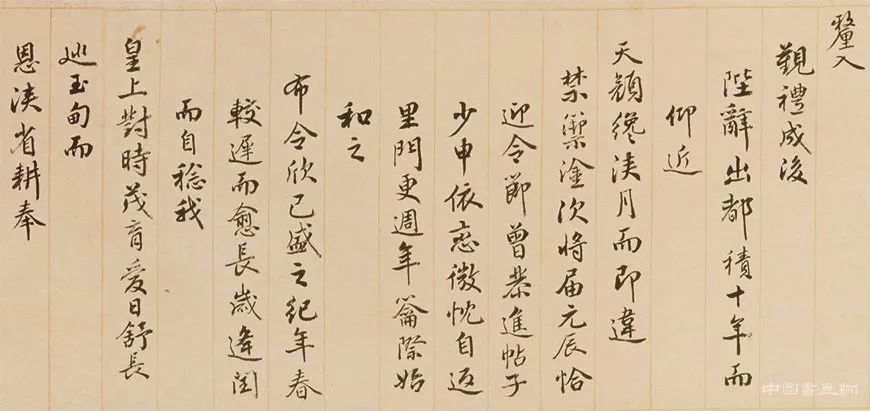 釐入
覲禮成後
陛辭出都積十年而
仰近
天顏纔浹月而即違
禁籞塗次將屆元辰恰
迎令節曾恭進帖子
少申依戀微忱自返
里門更週年籥際始
和之
布令欣已盛之紀年春
較遲而愈長歲逢閏
而自稔我
皇上對時茂育愛日舒長
巡玉甸而
恩浹省耕奉
中国书画网